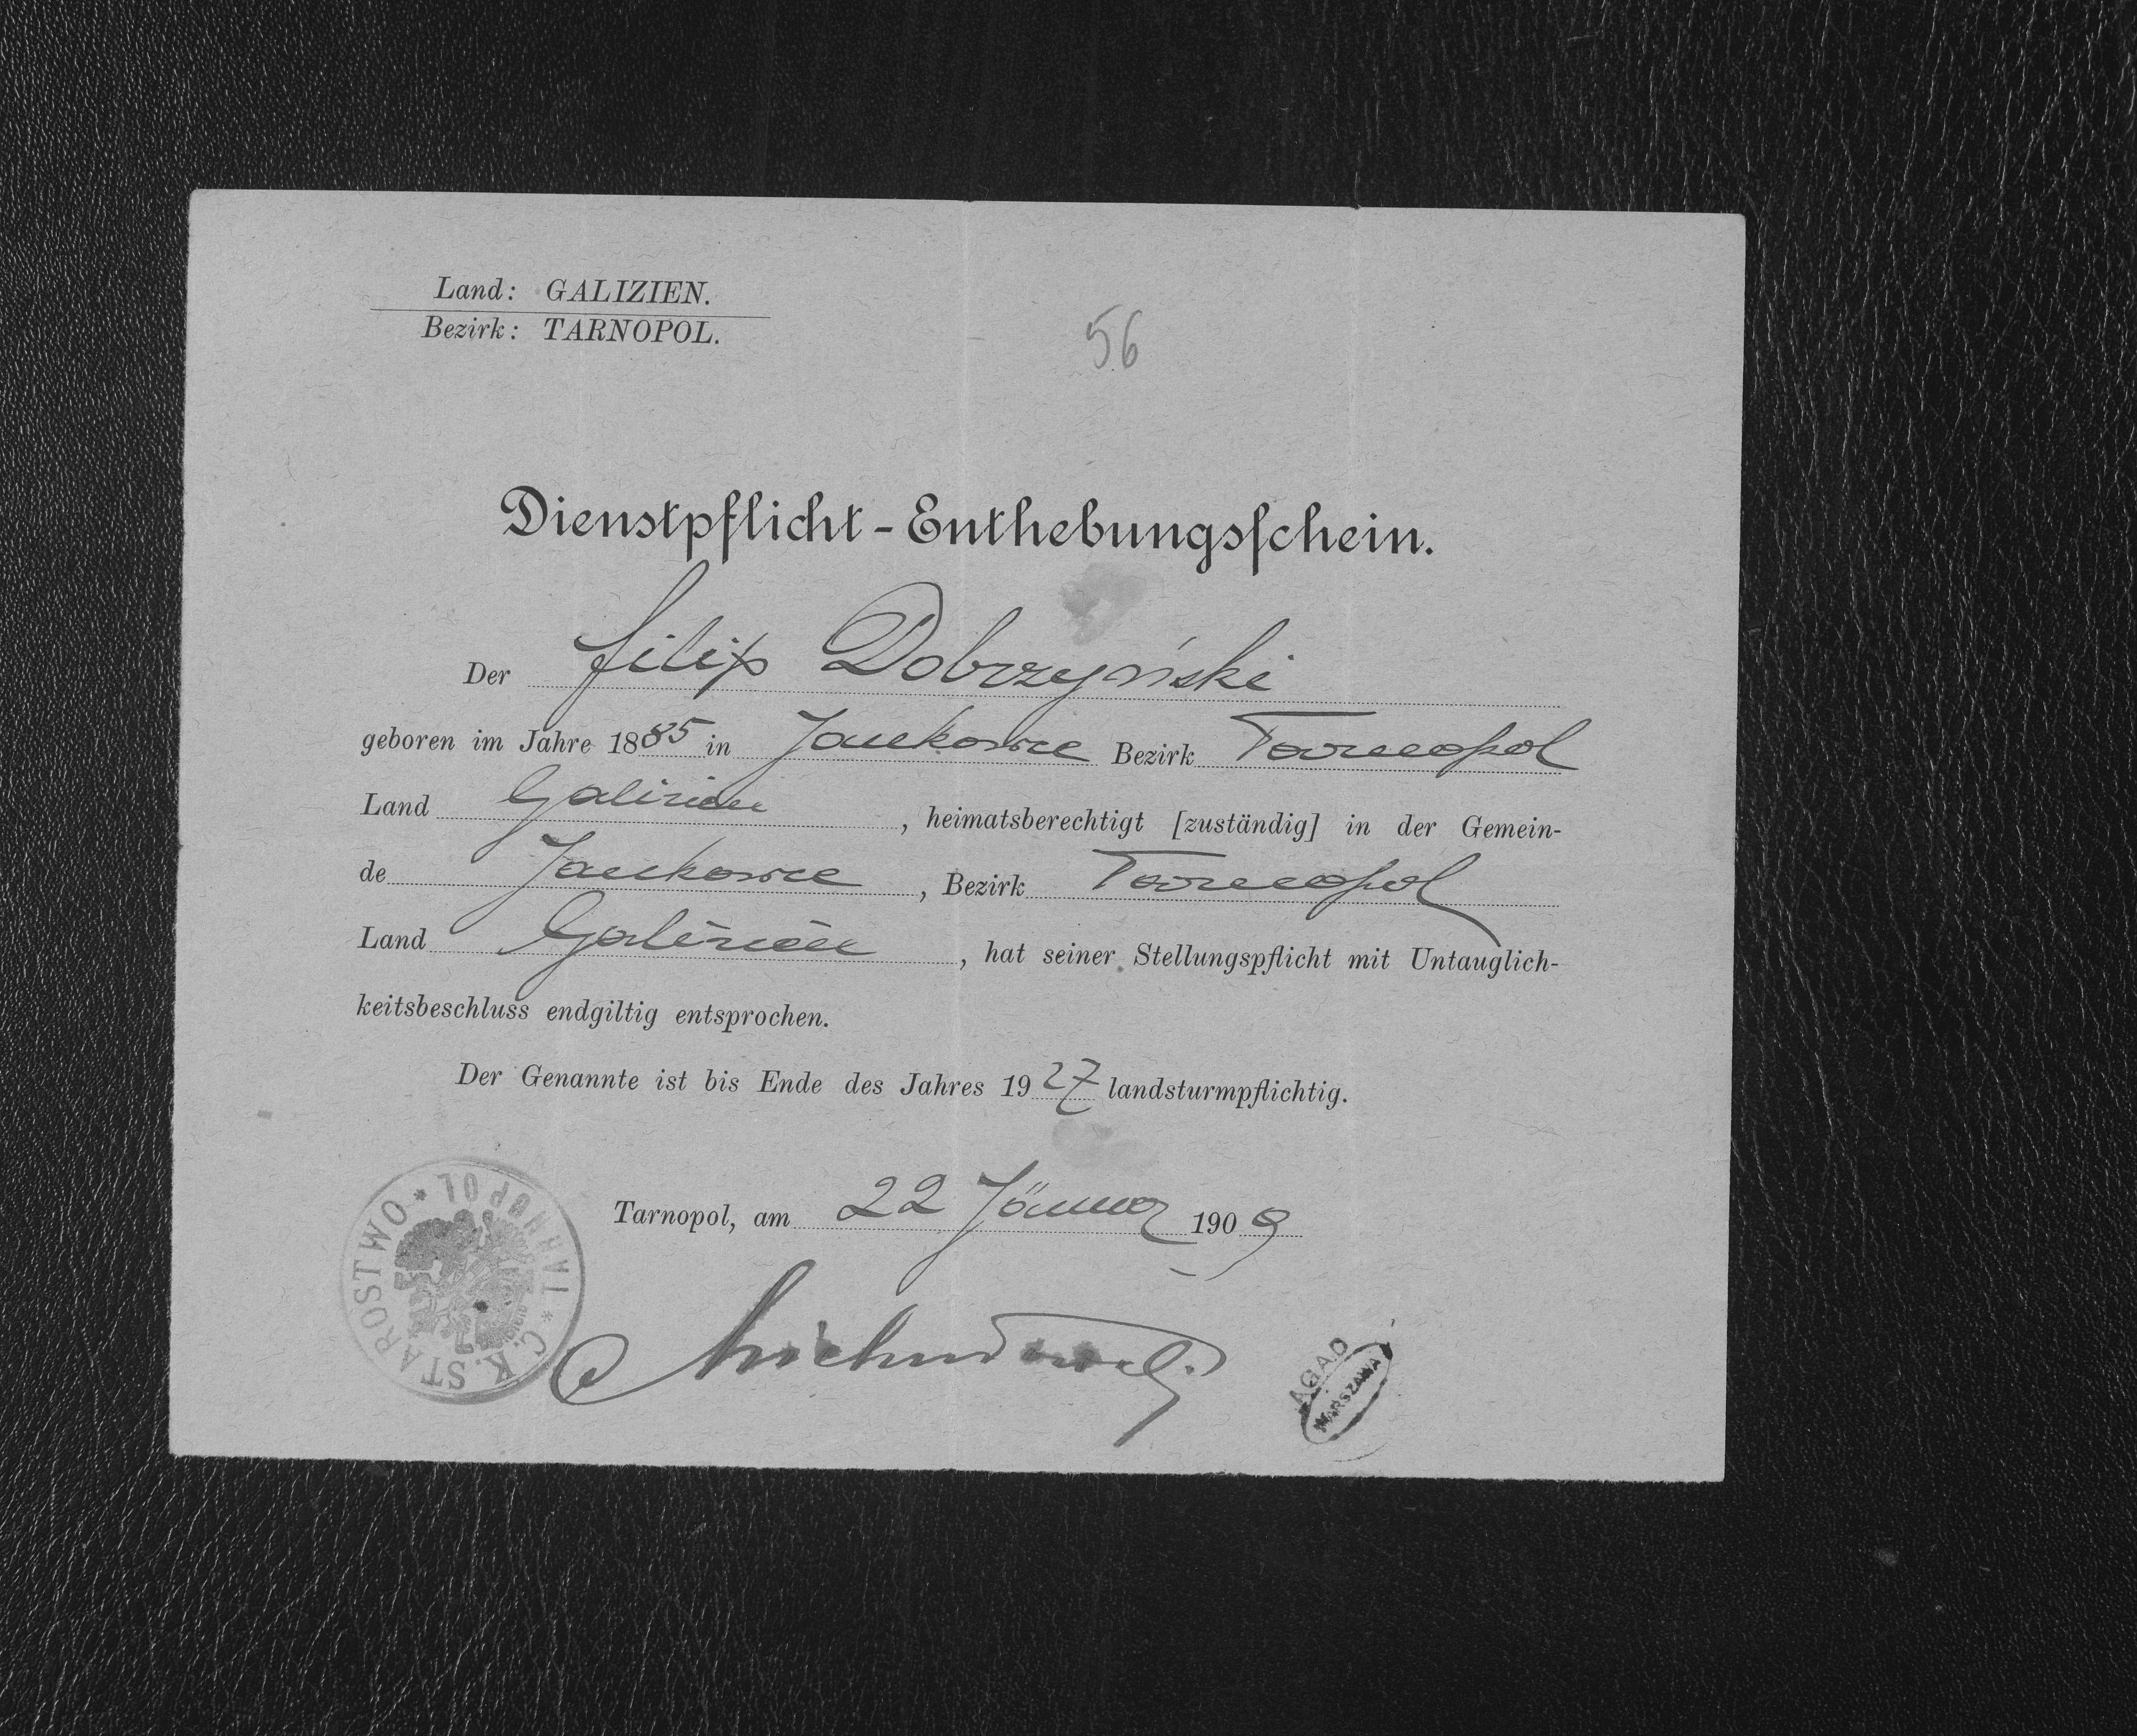 Land: GALIZIEN.
Bezirk: TARNOPOL.
56
Dienstpflicht-Enthebungsschein.
Der Filip Dobrzyński
geboren im Jahre 1885 in Jankowce Bezirk Tarnopol
Land Galizien, heimatsberechtigt [zuständig] in der Gemein-
de Jankowce, Bezirk Tarnopol
Land Galizien, hat seiner Stellungspflicht mit Untauglich-
keitsbeschluss endgiltig entsprochen.
Der Genannte ist bis Ende des Jahres 1927 landsturmpflichtig.
Tarnopol, am 22 Jänner 1909
C. K. STAROSTWO * TARNOPOL *
AGAD
WARSZAWA